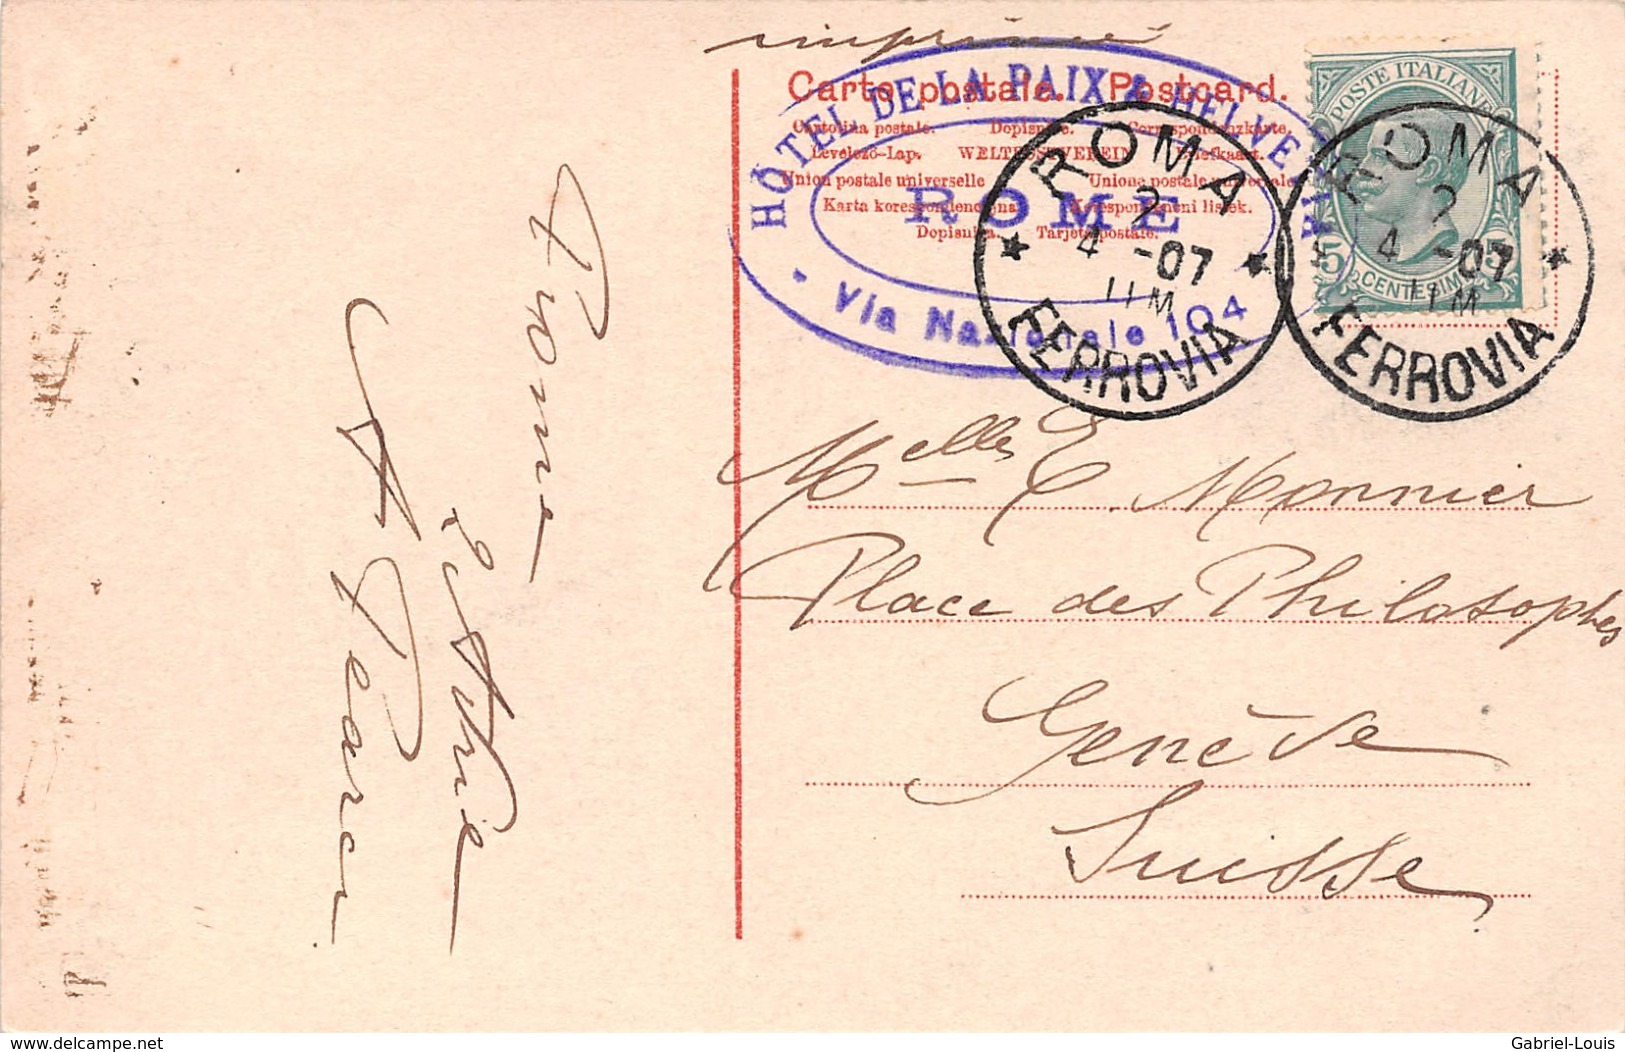 imprimé
Carte postale. Postcard.
Cartolina postale. Dopisnice. Correspondenzkarte.
Levelező-Lap. WELTPOSTVEREIN Briefkaart.
Union postale universelle Unione postale universale
Karta korespondencyjna Korespondenční lístek.
Dopisnica. Tarjeta postale.
HÔTEL DE LA PAIX & HELVETIA
ROME
Via Nazionale 104
POSTE ITALIANE
5 CENTESIMI 5
ROMA
2
4 -07
11M
FERROVIA
ROMA
2
4 -07
11M
FERROVIA
Melles E. Monnier
Place des Philosophes
Genève
Suisse
Rome
www.delcampe.net
Gabriel-Louis